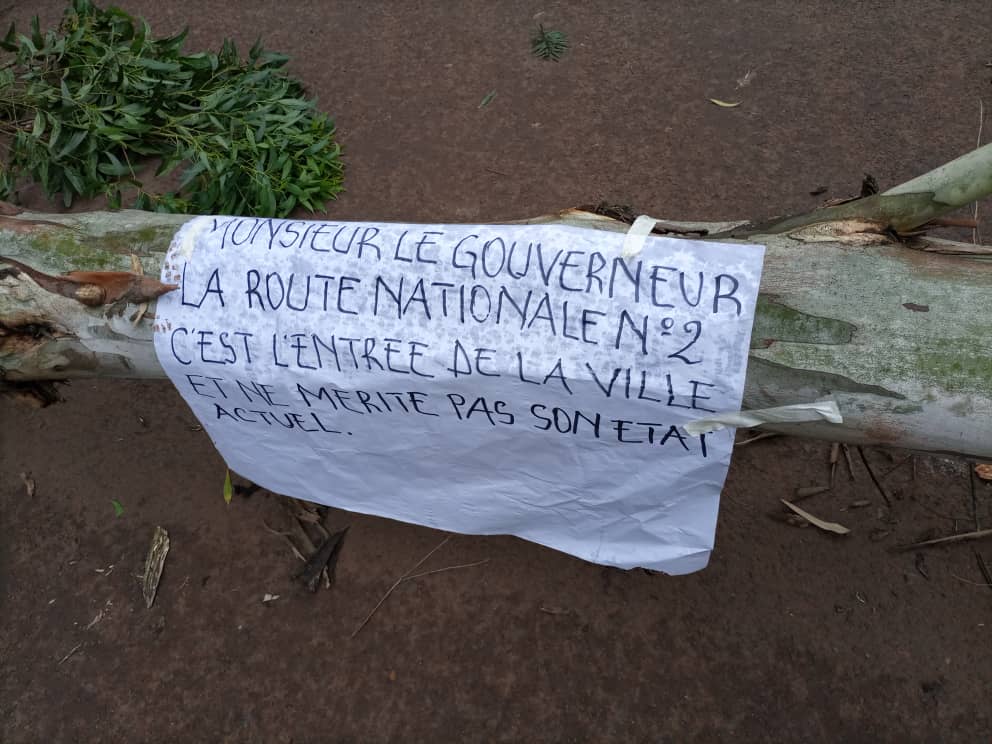 MONSIEUR LE GOUVERNEUR
LA ROUTE NATIONALE N°2
C'EST L'ENTREE DE LA VILLE
ET NE MERITE PAS SON ETAT
ACTUEL.